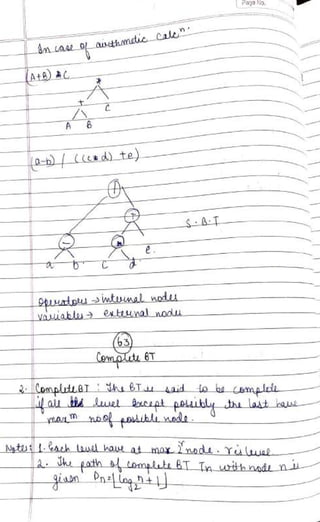 Page No.
In case of arithmetic calcⁿ.
(A+B) * C
*
+ C
A B
(a-b) / ((c*d) + e)
/
- +
* e.
S.B.T
a b c d
operators → internal nodes
variables → external nodes
63
Complete BT
2. Complete BT : The BT is said to be complete
if all the level except possibly the last have
maxᵐ no of possible node.
Note: 1. Each level have at max 2ʳ node. r is level
2. The path of complete BT Tn with node n is
given Dn = ⌊log₂n + 1⌋